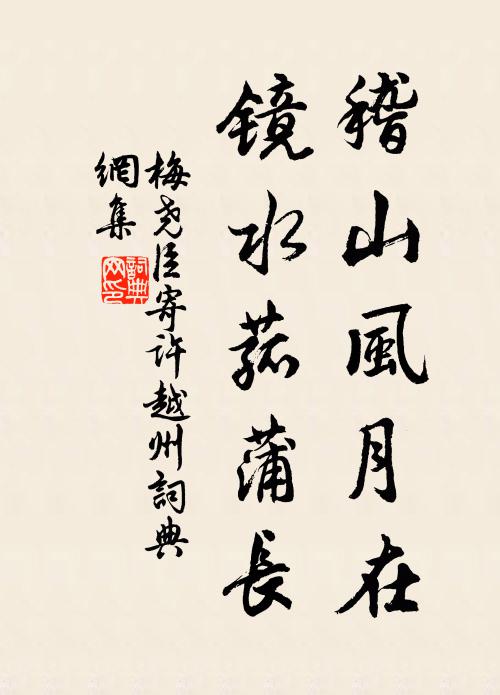 稽山風月在
鏡水菰蒲長
梅尧臣寄许越州詞典
網集
詞典網印